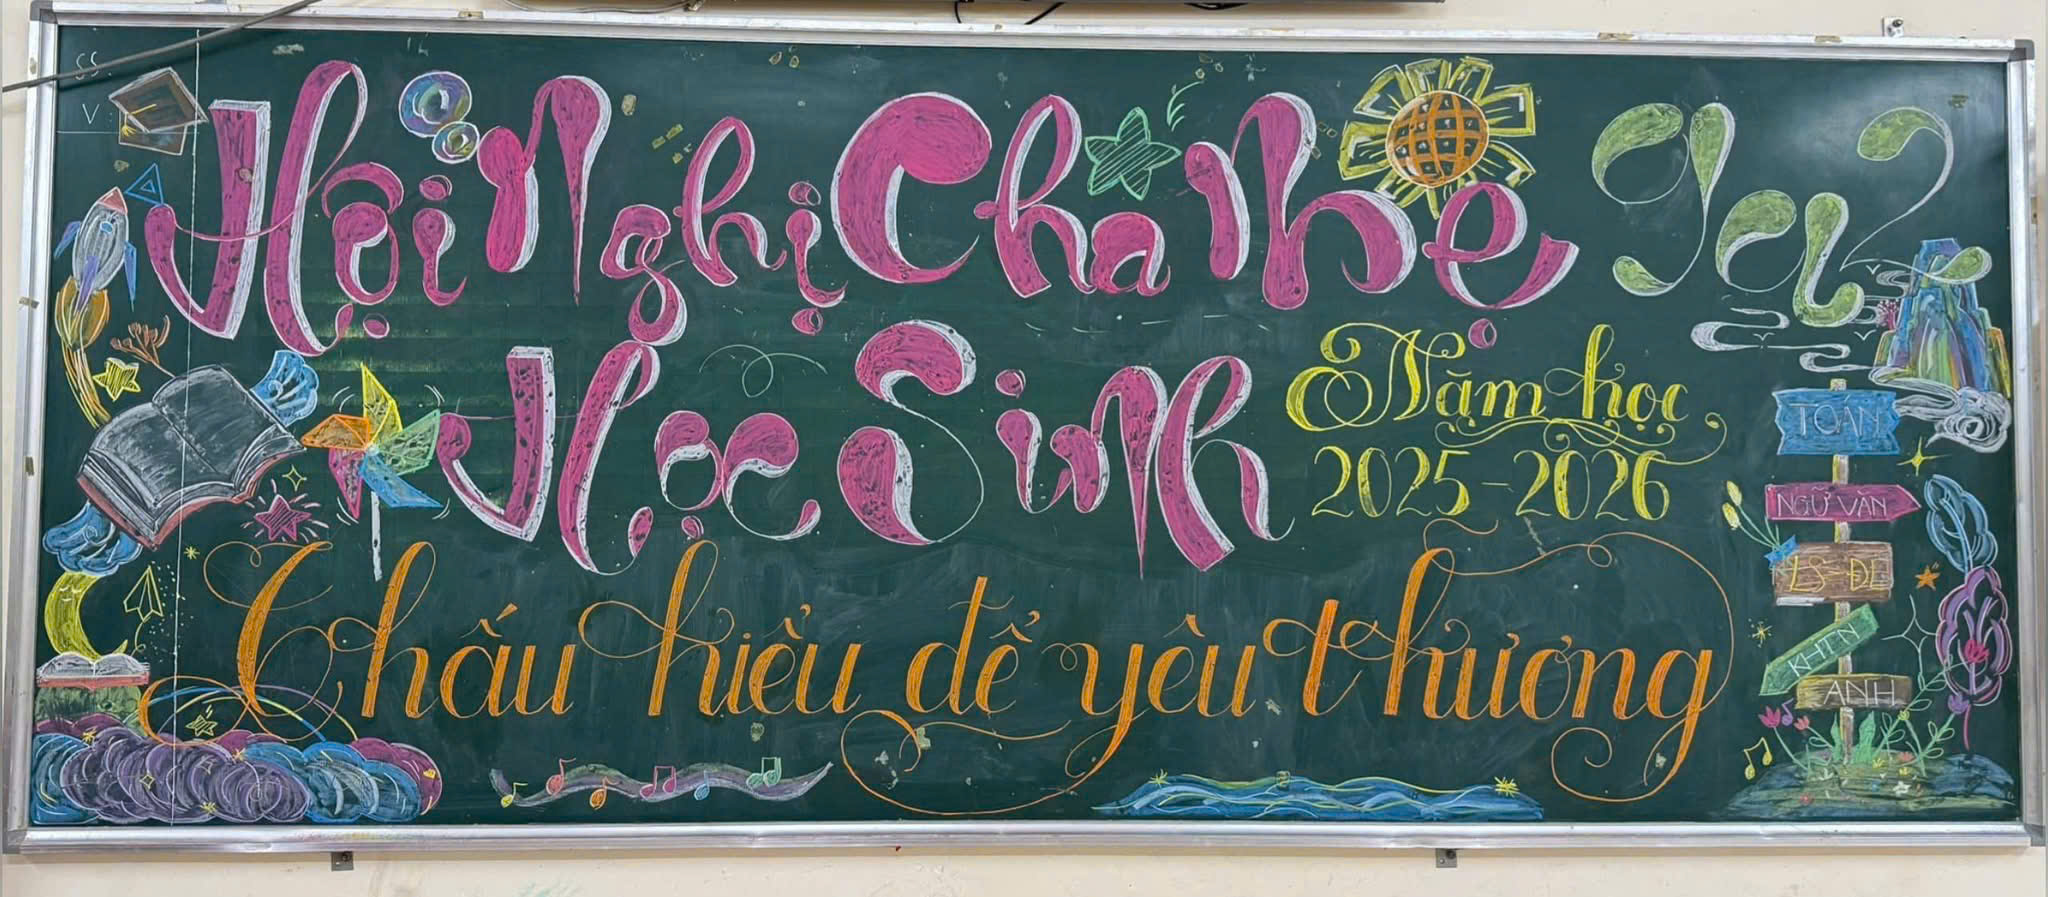 SS
V
Hội Nghị Cha Mẹ 9a2
Học Sinh
Năm học
2025-2026
Thấu hiểu để yêu thương
TOÁN
NGỮ VĂN
LS-ĐL
KHTN
ANH